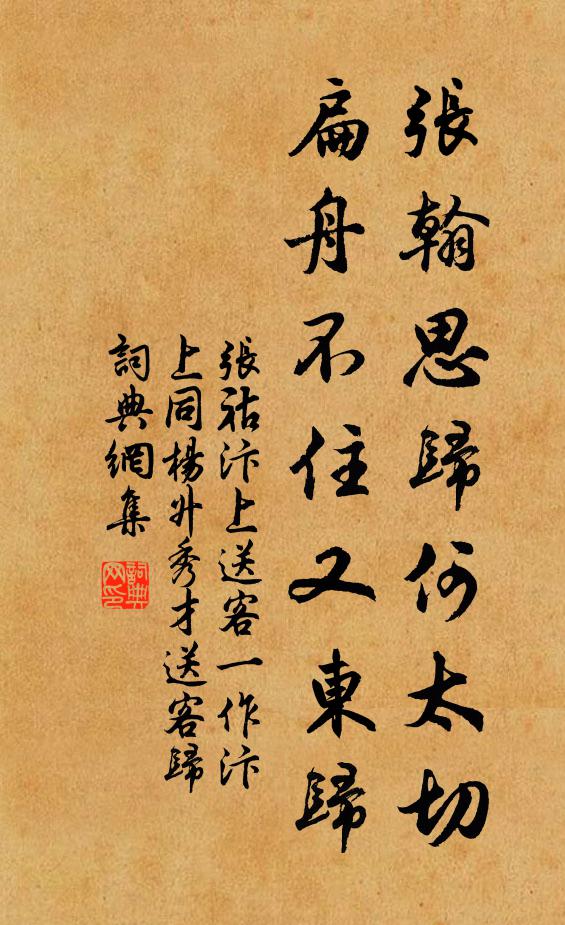 張翰思歸何太切
扁舟不住又東歸
張祜汴上送客一作汴
上同楊升秀才送客歸
詞典網集
詞典网印